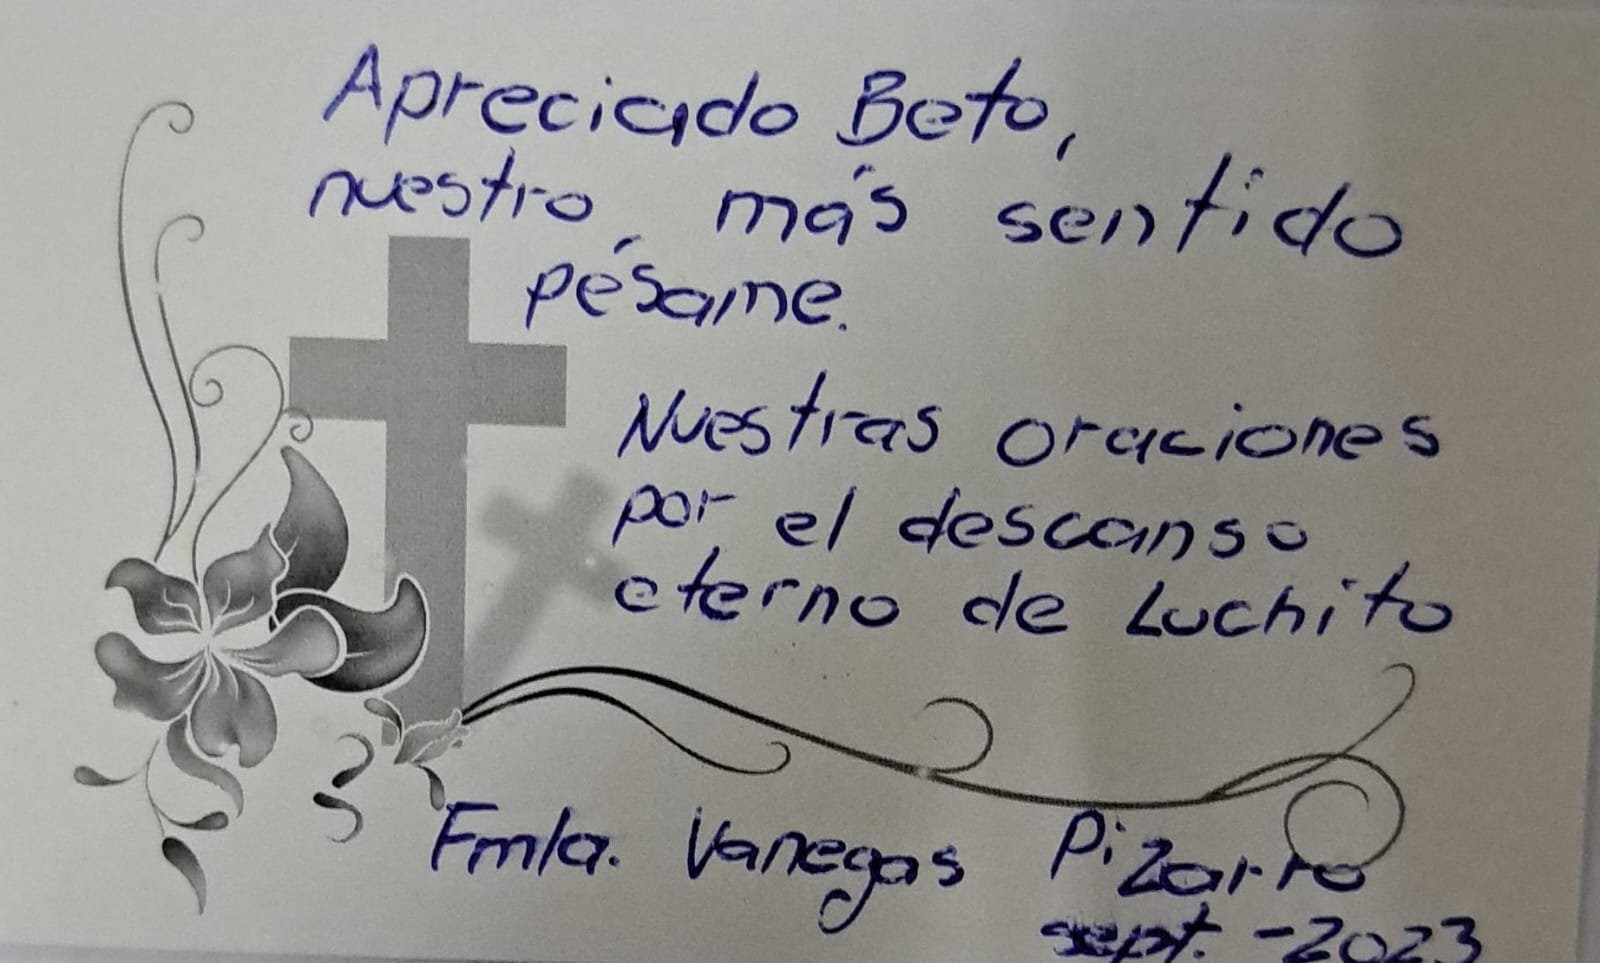 Apreciado Beto,
nuestro más sentido
pésame.
Nuestras oraciones
por el descanso
eterno de Luchito
Fmla. Vanegas Pizarro
sept. -2023